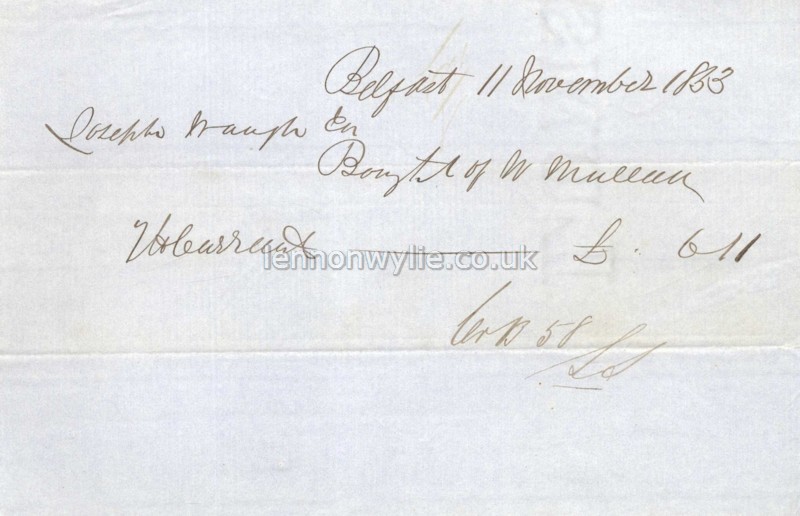 Belfast 11 November 1853
Joseph Waugh Esq
Bought of W Mullan
£ . 6 11
lennonwylie.co.uk
58